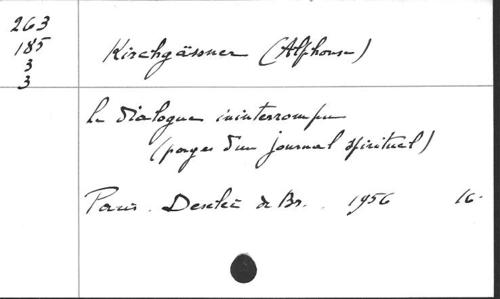 263
185
3
3
Kirchgässner (Alphonse)
Le dialogue ininterrompu
(pages d'un journal spirituel)
Paris. Desclée de Br. 1956 16.